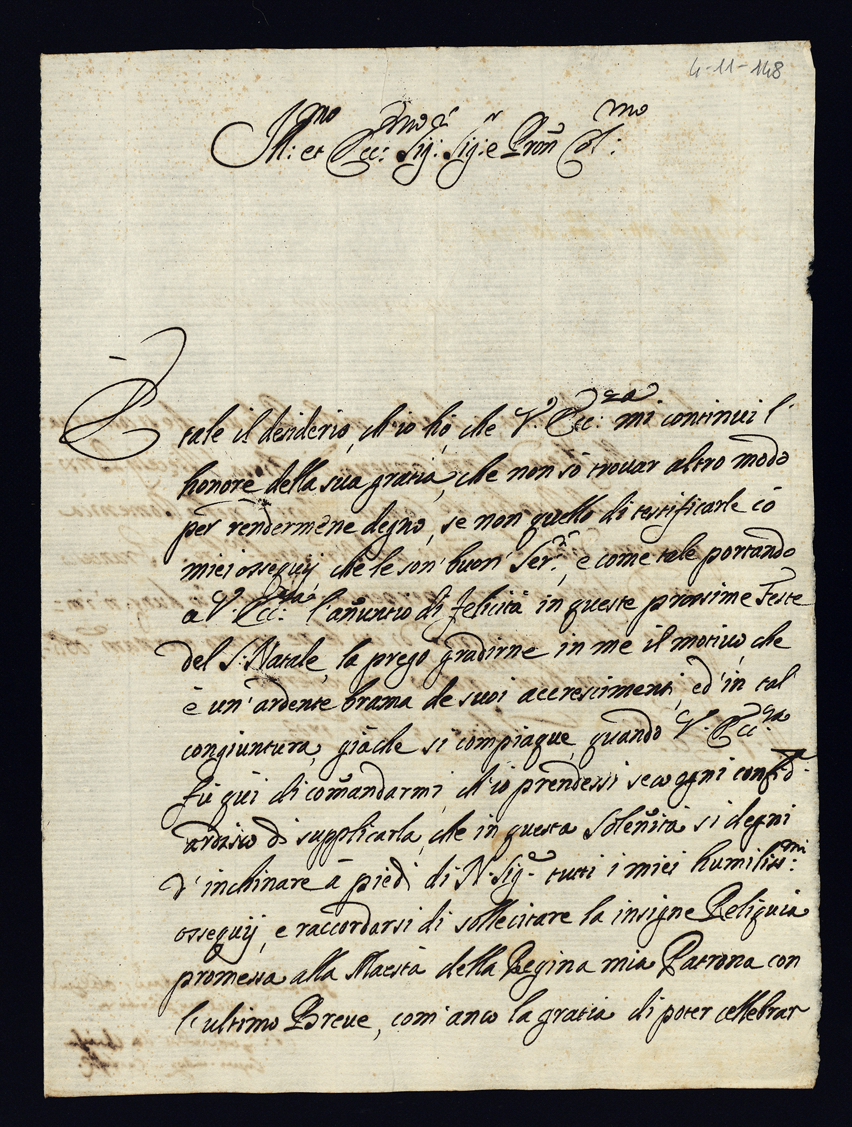 4-11-148
Ill:mo et Ecc:mo Sig:r Sig:r e Pron Col:mo
È tale il desiderio, ch'io hò, che V. Ecc:za mi continui l'
honore della sua gratia, che non sò trovar altro modo
per rendermene degno, se non quello di testificarle cō
miei ossequij, che le son' buon' Ser:re, e come tale portando
a V. Ecc:za l'añuntio di felicità in queste prossime Feste
del S. Natale, la prego gradirne in me il motivo, che
è un'ardente brama de suoi accrescimenti, ed'in tal
congiuntura, giàche si compiaque, quando V. Ecc:za
fù quì di comañdarmi, ch'io prendessi seco ogni confid:za
ardisco di supplicarla, che in questa Soleñità si degni
d'inchinare à piedi di N. Sig:re tutti i miei humiliss:mi
ossequij, e raccordarsi di sollecitare la insigne Reliquia
promessa alla Maestà della Regina mia Patrona con
l'ultimo Breve, com'anco la gratia di poter cellebrar